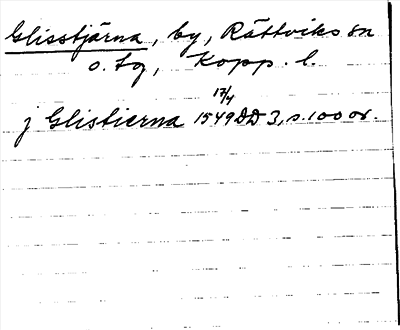 Glisstjärna, by, Rättviks sn
o. tg, Kopp. l.
17/4
j Glistierna 1549 DD 3, s. 100 or.